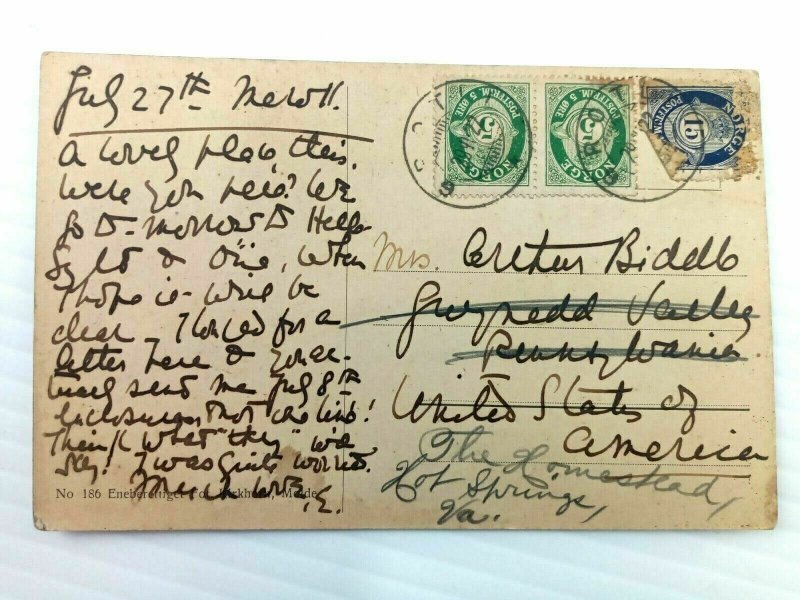 July 27th Merok.
A lovely place, this.
Were you here? We
go to-morrow to Helle-
sylt & Öie, when
I hope it will be
clear. I looked for a
letter here & you ac-
tually sent me July 8th
enclosures & not one line!
Think what "they" will
say! I was quite worried.
Much love, E.
No 186 Eneberettiget Fot. Birkhoff, Molde
POSTFRIM 5 ØRE
5
NORGE
POSTFRIM 5 ØRE
5
NORGE
POSTFRIM
15
NORGE
Mrs. Arthur Biddle
Gwynedd Valley
Pennsylvania
United States of
America
The Homestead,
Hot Springs,
Va.